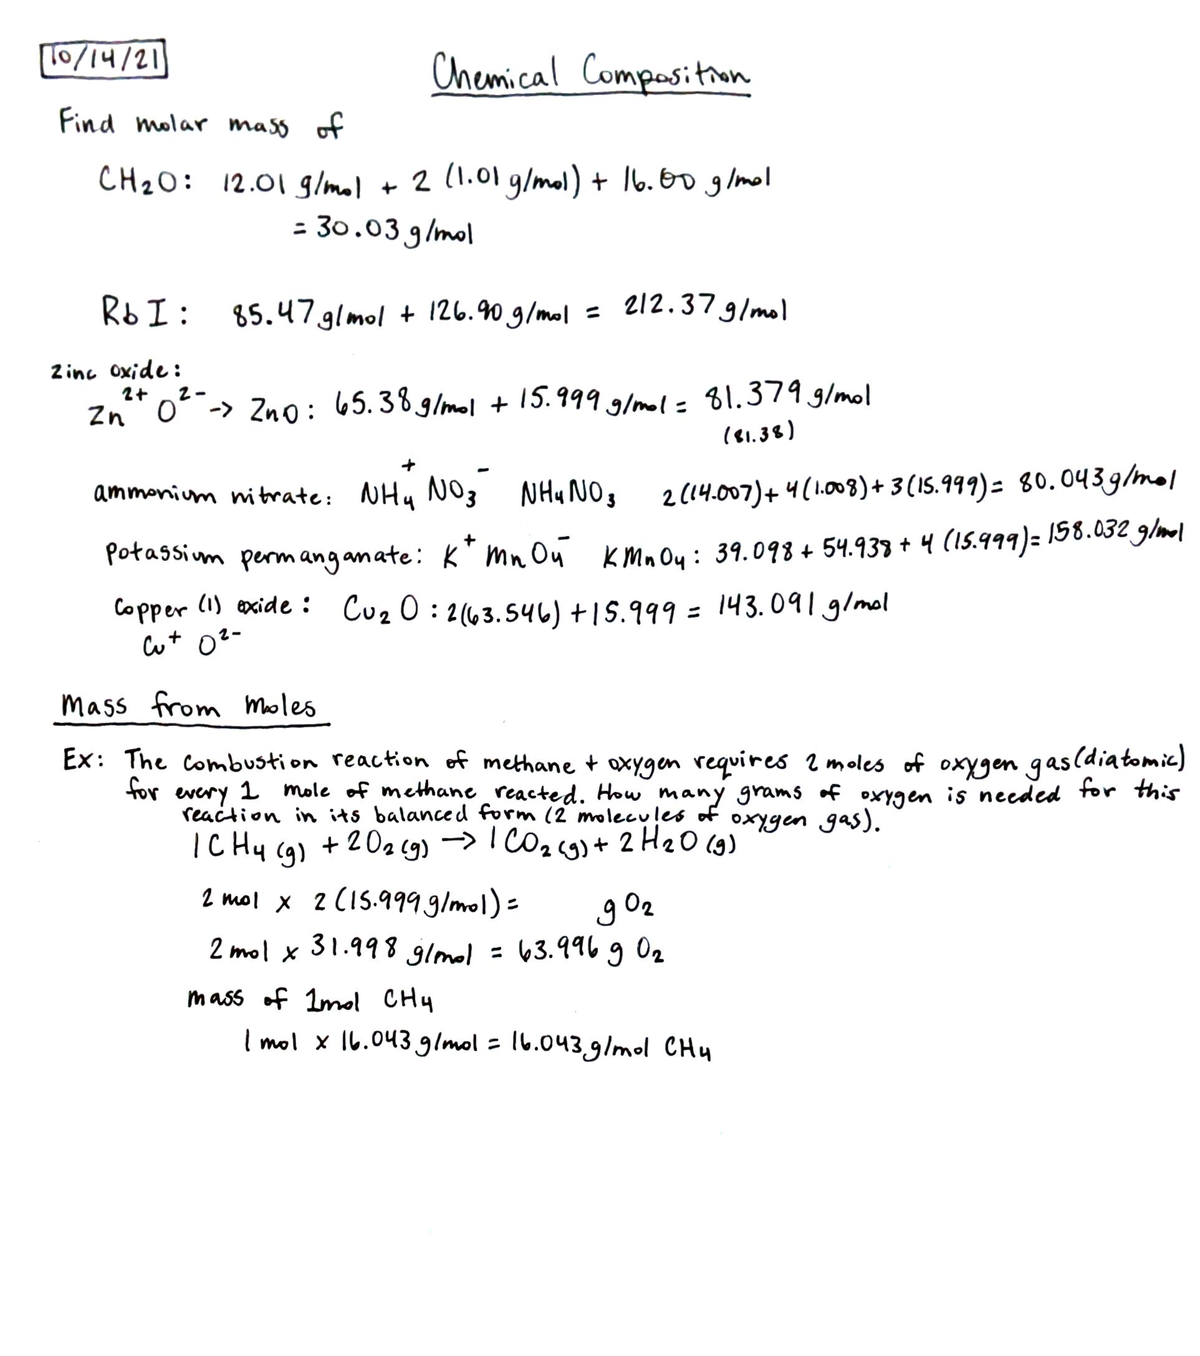 10/14/21
Chemical Composition
Find molar mass of
CH₂O: 12.01 g/mol + 2 (1.01 g/mol) + 16.00 g/mol
= 30.03 g/mol
RbI: 85.47 g/mol + 126.90 g/mol = 212.37 g/mol
Zinc oxide:
Zn²⁺ O²⁻ -> ZnO: 65.38 g/mol + 15.999 g/mol = 81.379 g/mol
(81.38)
ammonium nitrate: NH₄⁺ NO₃⁻ NH₄NO₃ 2(14.007) + 4(1.008) + 3(15.999) = 80.043 g/mol
Potassium permanganate: K⁺ MnO₄⁻ KMnO₄: 39.098 + 54.938 + 4 (15.999) = 158.032 g/mol
Copper (1) oxide: Cu₂O: 2(63.546) + 15.999 = 143.091 g/mol
Cu⁺ O²⁻
Mass from Moles
Ex: The combustion reaction of methane + oxygen requires 2 moles of oxygen gas (diatomic)
for every 1 mole of methane reacted. How many grams of oxygen is needed for this
reaction in its balanced form (2 molecules of oxygen gas).
1CH₄ (g) + 2O₂ (g) → 1CO₂ (g) + 2H₂O (g)
2 mol x 2(15.999 g/mol) = g O₂
2 mol x 31.998 g/mol = 63.996 g O₂
mass of 1mol CH₄
1 mol x 16.043 g/mol = 16.043 g/mol CH₄